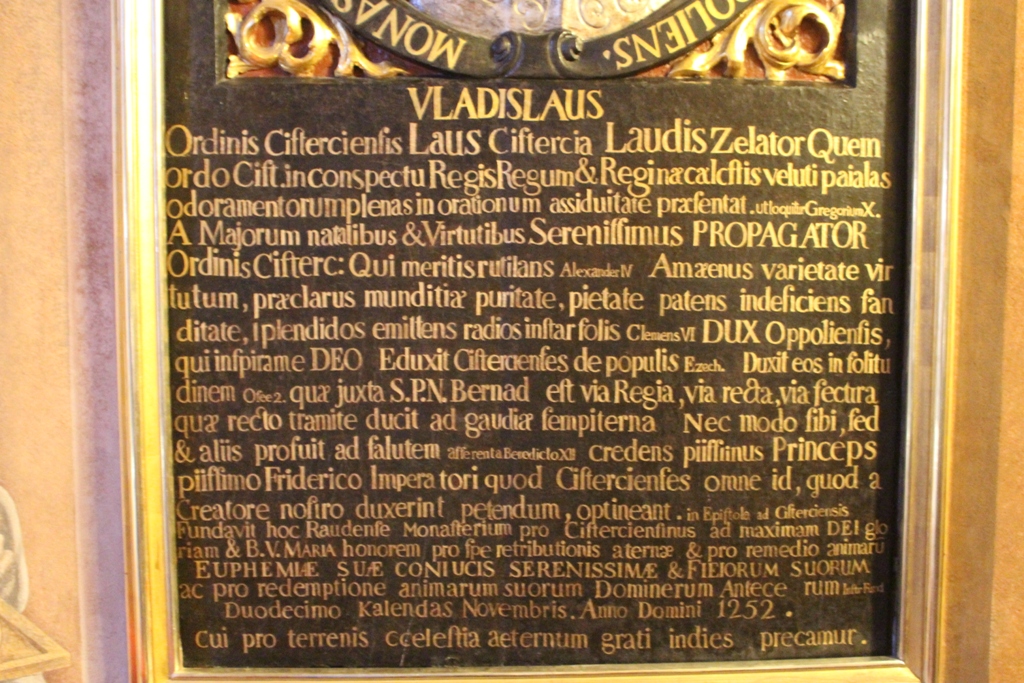 MONAS OLIENS.
VLADISLAUS
Ordinis Ciſtercienſis LAUS Ciſtercia LAUDIS Zelator Quem
ordo Ciſt. in conspectu Regis Regum & Reginæ cælcſtis veluti paialas
odoramentorum plenas in orationum assiduitate præſentat. ut loquitur Gregorium X.
A Majorum natalibus & Virtutibus Sereniſſimus PROPAGATOR
Ordinis Ciſterc: Qui meritis rutilans Alexander IV Amæenus varietate vir
tutum, præclarus munditiæ puritate, pietate patens indeficiens fan
ditate, ſplendidos emittens radios inſtar ſolis Clemens VI DUX Oppolienſis,
qui inſpirame DEO Eduxit Ciſtercienſes de populis Ezech. Duxit eos in ſolitu
dinem Oſee 2. quæ juxta S.P.N. Bernad eſt via Regia, via recta, via ſectura
quæ recto tramite ducit ad gaudiæ ſempiterna Nec modo ſibi, ſed
& aliis profuit ad ſalutem aſſerenta Benedicto XII credens piiſſimus Princeps
piiſſimo Friderico Imperatori quod Ciſtercienſes omne id, quod a
Creatore noſiro duxerint petendum, optineant. in Epiſtola ad Ciſterciensis
Fundavit hoc Raudenſe Monaſterium pro Ciſtercienſinus ad maximam DEI glo
riam & B.V. MARIA honorem pro ſpe retributionis aternæ & pro remedio animaru
EUPHEMIÆ SUÆ CONIUCIS SERENISSIMÆ & FIEIORUM SUORUM
ac pro redemptione animarum suorum Dominerum Antece rum Inſtr Fund
Duodecimo Kalendas Novembris. Anno Domini 1252.
Cui pro terrenis Ccelestia aeternum grati indies precamur.